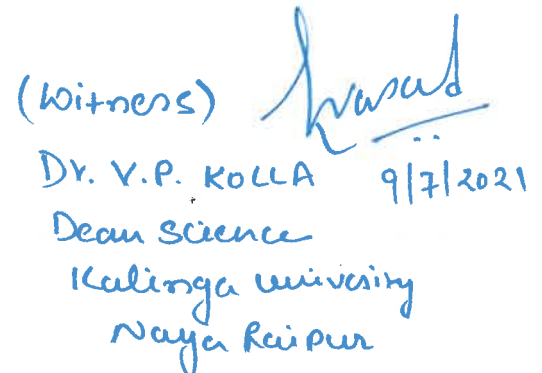 (Witness) Prasad
Dr. V.P. KOLLA 9/7/2021
Dean Science
Kalinga univesity
Naya Raipur